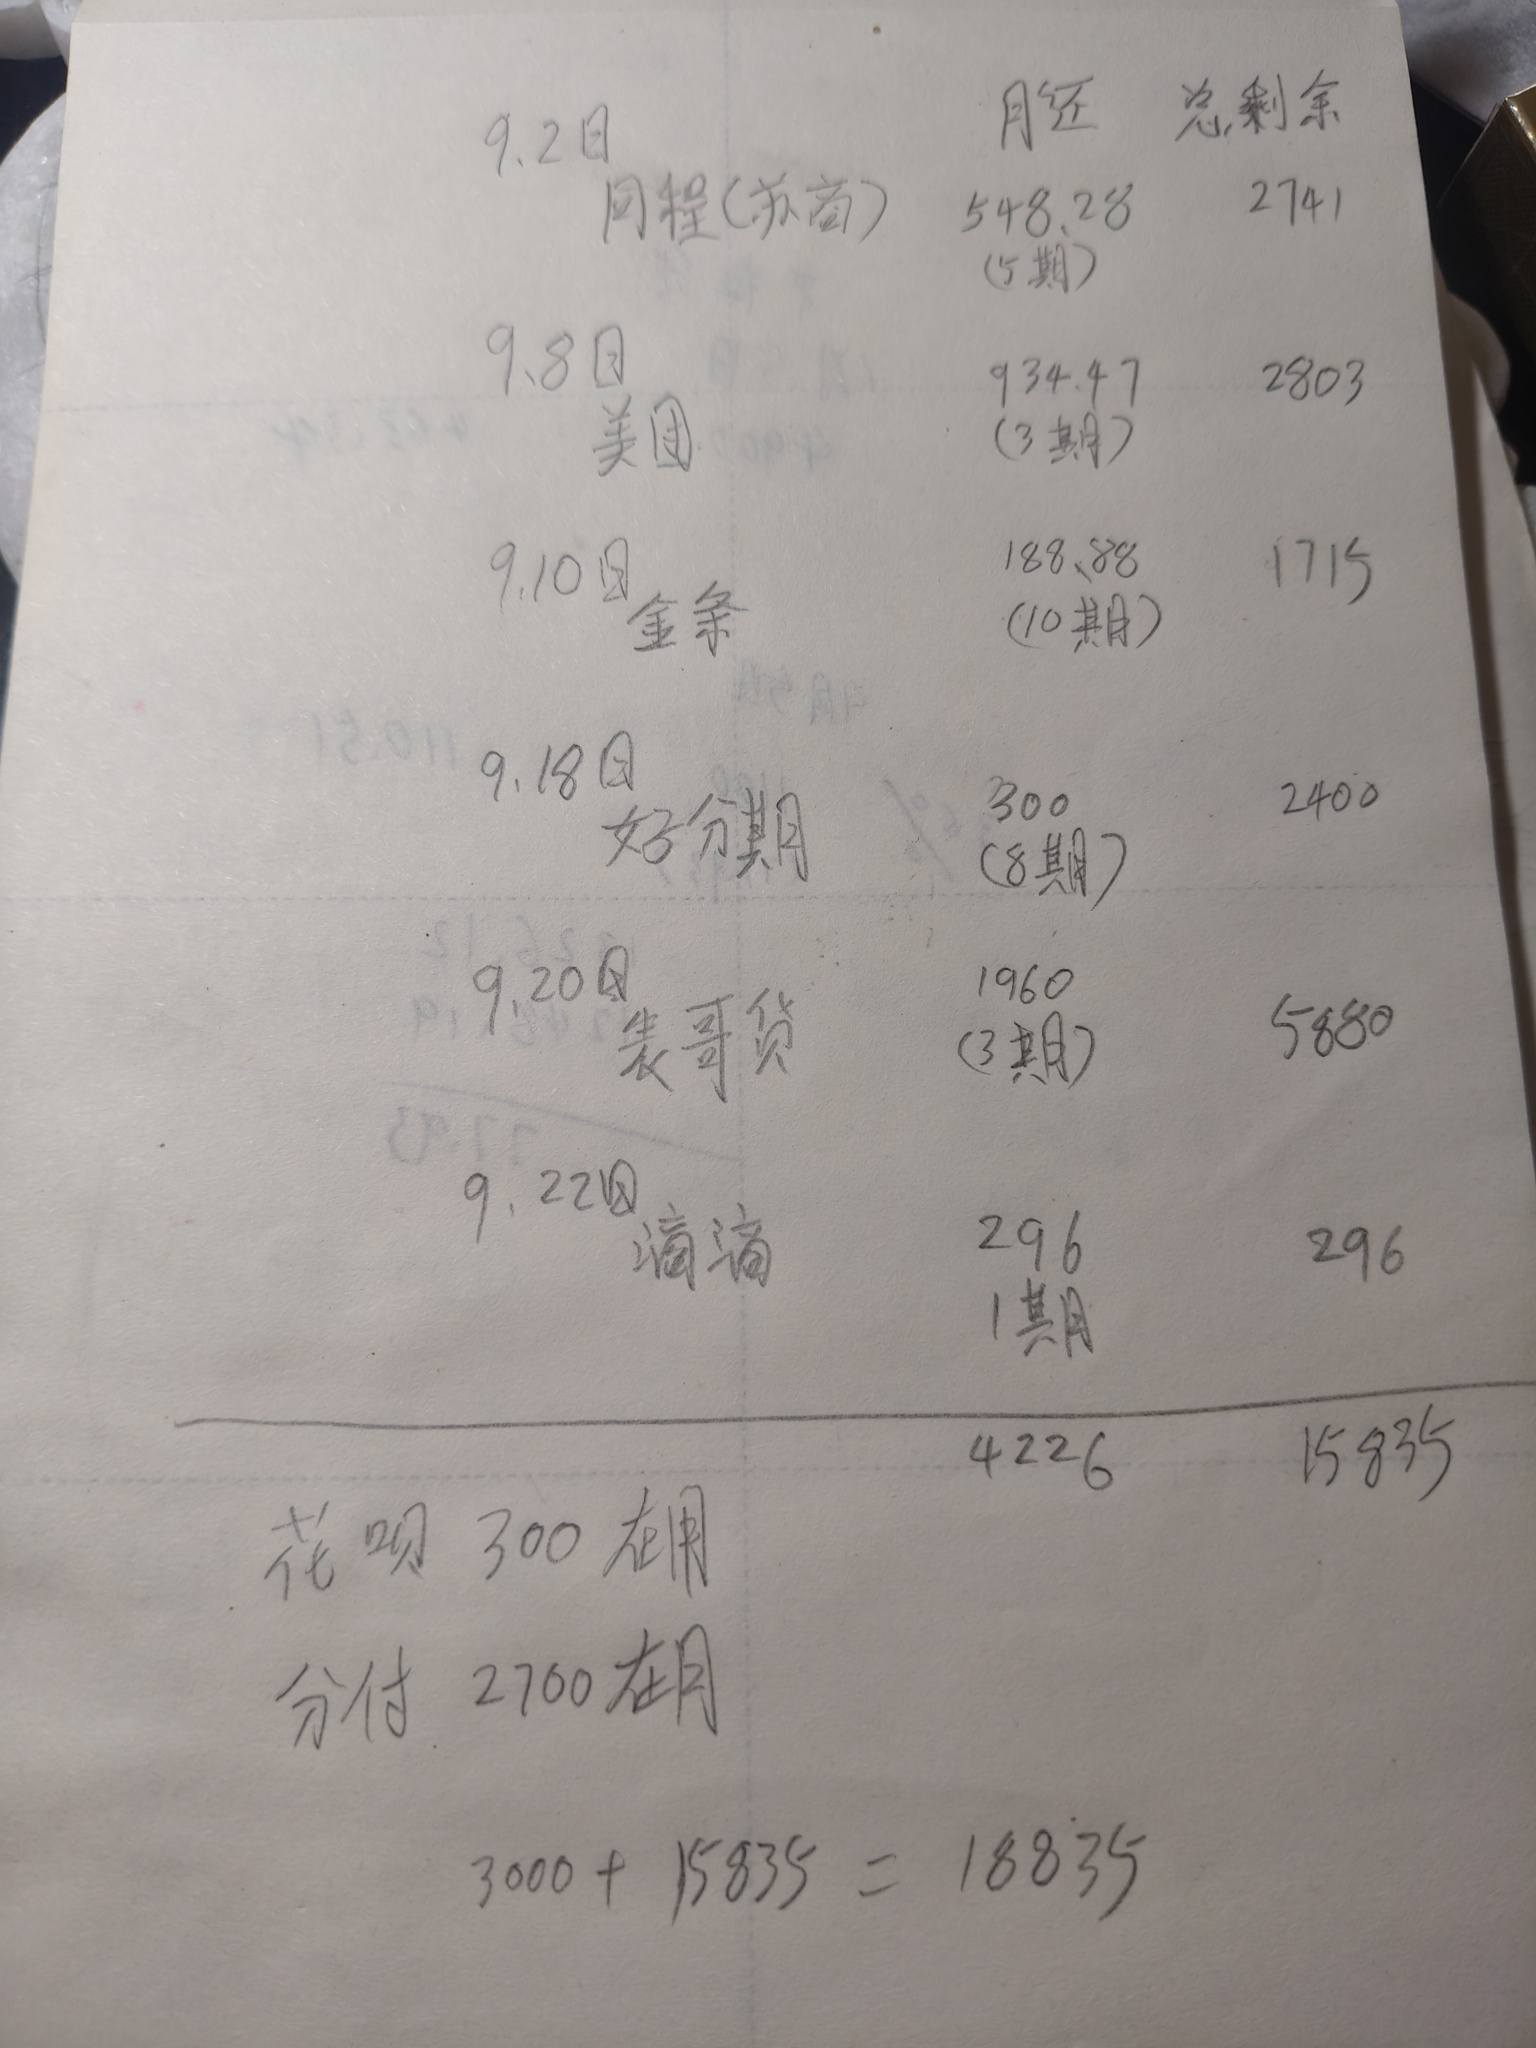 9.2日 月还 总剩余
同程(苏商) 548.28 2741
(5期)
9.8日
美团 934.47 2803
(3期)
9.10日
金条 188.88 1715
(10期)
9.18日
好分期 300 2400
(8期)
9.20日
表哥贷 1960 5880
(3期)
9.22日
滴滴 296 296
1期
4226 15835
花呗 300在用
分付 2700在月
3000+15835=18835